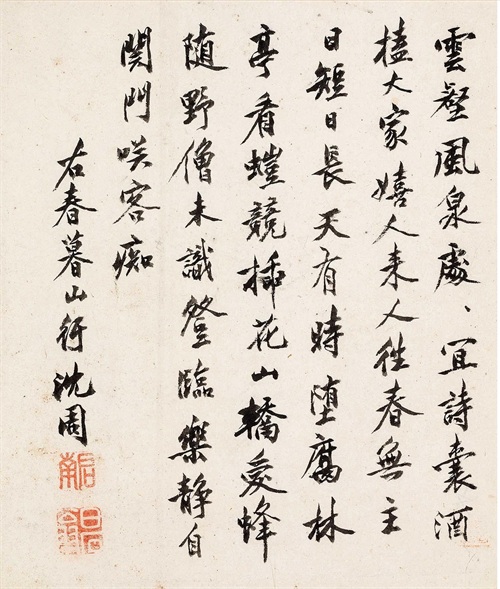 雲壑風泉處、宜詩囊酒
榼大家嬉人來人往春無主
日短日長天有時墮腐林
亭看螘競插花山轎愛蜂
随野僧未識登臨樂静自
関門咲客痴
右春暮山行沈周
啟南